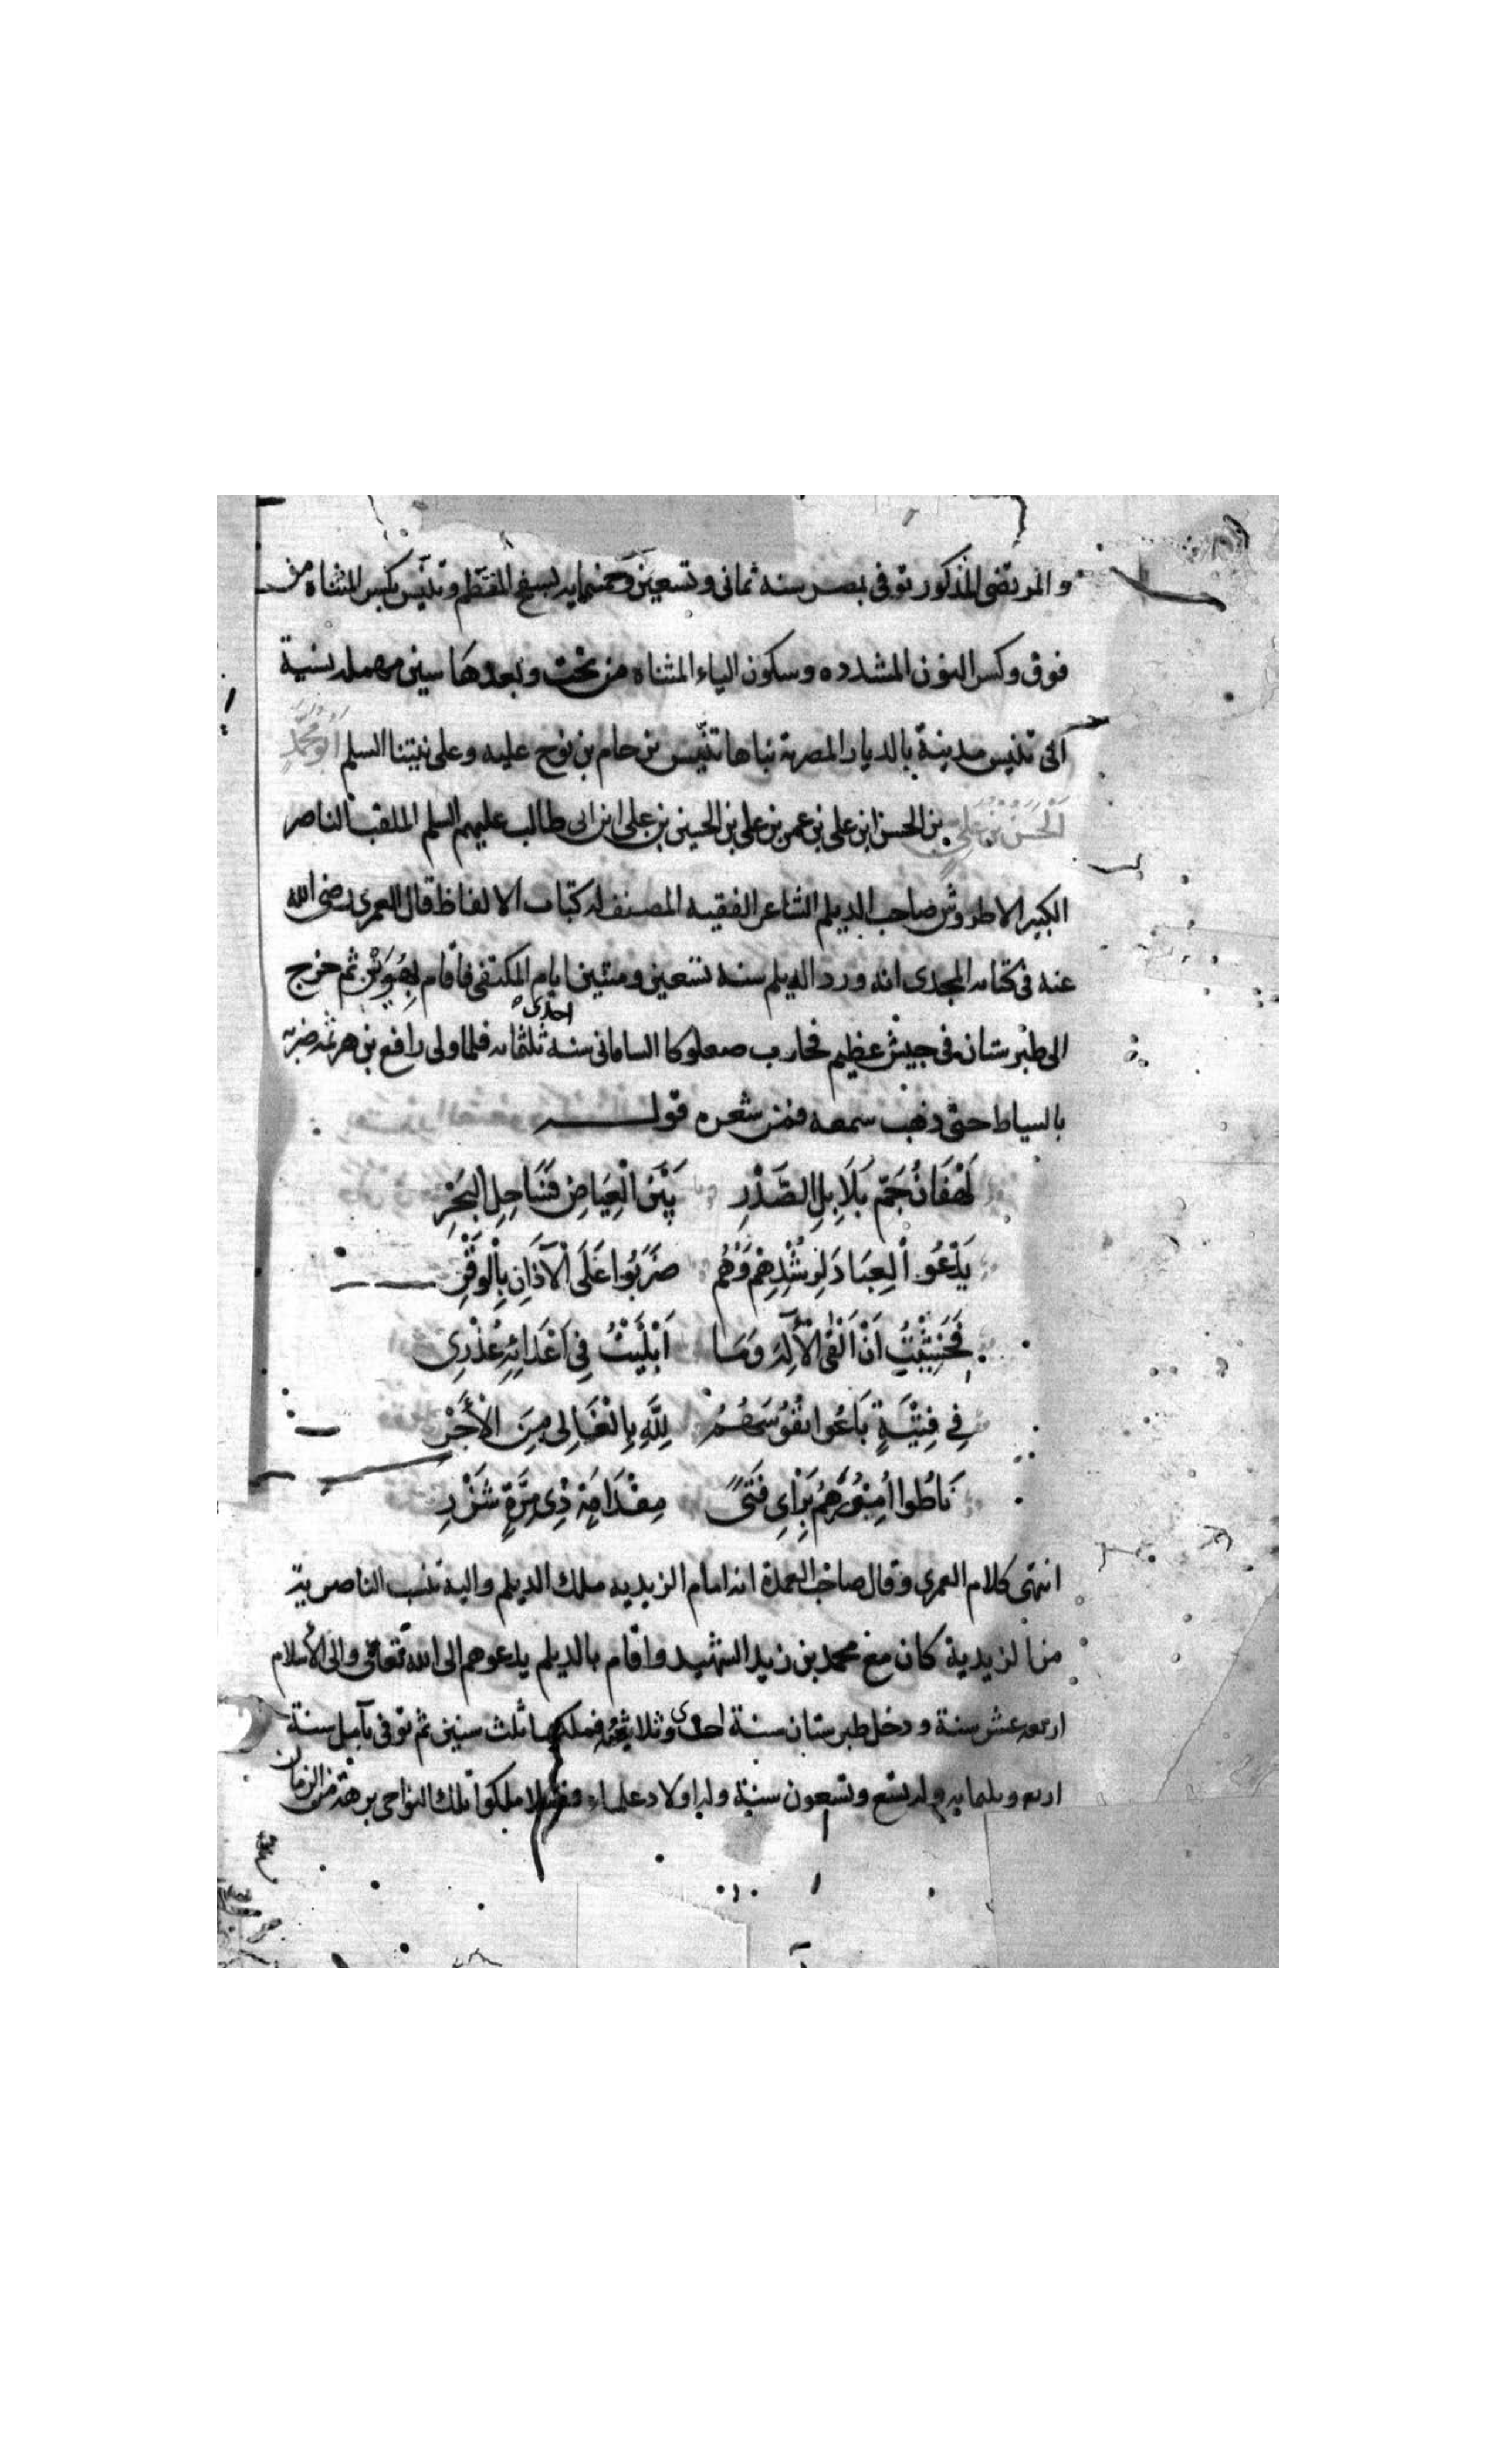 والمرتضى المذكور توفى بمصر سنه ثمانى وتسعين وخمسمايه بسفح المقطم وتنيس بكسر المثناه من
فوق وكسر النون المشدده وسكون الياء المثناه من تحت وبعدها سين مهمله نسبة
الى تنيس مدينة بالديار المصرية بناها تنيس بن حام بن نوح عليه وعلى نبينا السلم ابو محمد
الحسن بن علي بن الحسن ابن على بن عمر بن على بن الحسين بن على ابن ابى طالب عليهم السلم الملقب الناصر
الكبير الاطروش صاحب الديلم الشاعر الفقيه المصنف له كتاب الالفاظ قال العمرى رضى الله
عنه فى كتابه المجدى انه ورد الديلم سنه تسعين ومئتين ايام المكتفى فاقام بهوسم ثم خرج
الى طبرستان فى جيش عظيم فحارب صعلوكا السامانى سنه احدى ثلثمائه فلما ولى رافع بن هرثمه ضربه
بالسياط حتى ذهب سمعه فمن شعره قوله
لَهْفَانُ جَمّ بَلَابِلِ الصَّدْرِ بَيْنَ الْغِيَاضِ فَسَاحِلِ الْبَحْرِ
يَدْعُو الْعِبَادَ لِرُشْدِهِمْ وَهُمُ ضَرَبُوا عَلَى الْآذَانِ بِالْوَقْرِ
فَخَشِيْتُ اَنْ اَلْقَى الْاِلَهَ وَمَا اَبْلَيْتُ فِي اَعْدَائِهِ عُذْرِى
فِي فِتْيَةٍ بَاعُوا نُفُوسَهُمُ لِلَّهِ بِالْغَالِى مِنَ الْأَجْرِ
نَاطُوا اُمُوْرَهُمُ بِرَاىِ فَتًى مِقْدَامَةٍ ذِى مِرَّةٍ شَزْرِ
انتهى كلام العمرى وقال صاحب العمدة انه امام الزيديه ملك الديلم واليه تنسب الناصرية
من الزيدية كان مع محمد بن زيد الشهيد واقام بالديلم يدعوهم الى الله تعالى والى الأسلام
اربعه عشر سنة ودخل طبرستان سنة احدى وثلاثمئه فملكها ثلث سنين ثم توفى بآمل سنة
اربع وثلثمايه وله تسع وتسعون سنة وله اولاد علماء وفضلا ملكوا تلك النواحى برهة من الزمان